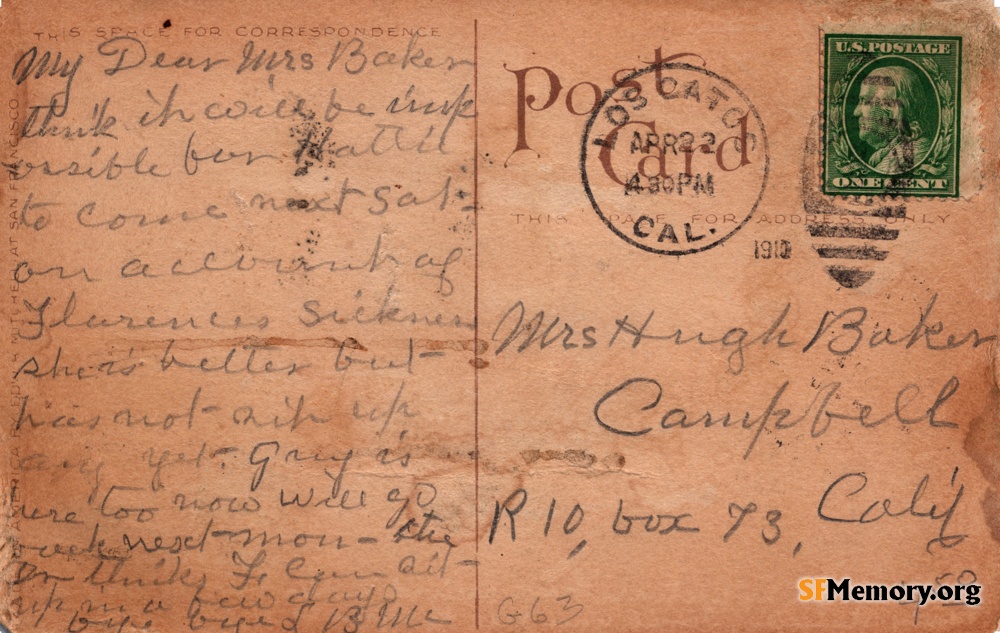 THIS SPACE FOR CORRESPONDENCE
My Dear Mrs Baker
think it will be imp
ossible for Hattie
to come next Sat-
on account of
Florences Sickness
she is better but
has not sit up
any yet. Guy is
here too now will go
back next mon- the
Dr thinks F. can sit-
up in a few days
bye bye
Post
Card
THIS SPACE FOR ADDRESS ONLY
LOS GATOS
APR 22
4 30 PM
CAL.
1910
U.S. POSTAGE
ONE CENT
Mrs Hugh Baker
Campbell
Calif
R 10, box 73,
G63
SFMemory.org